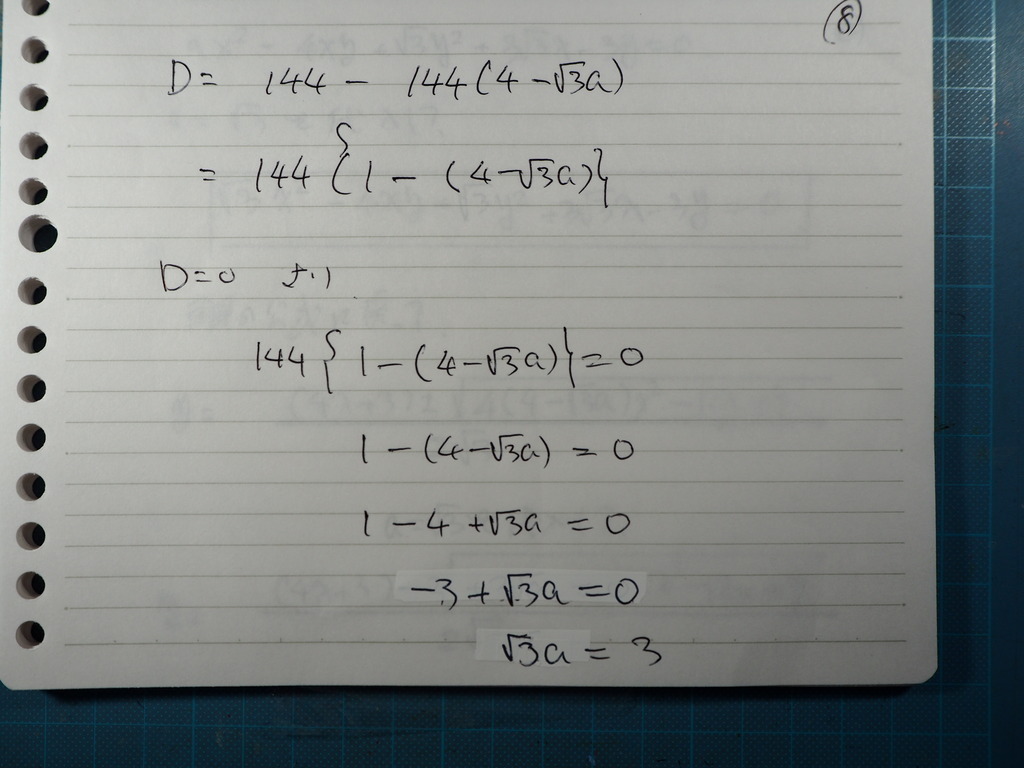 (8)
D = 144 - 144(4-√3a)
= 144{1 - (4-√3a)}
D=0 より
144{1-(4-√3a)}=0
1-(4-√3a) = 0
1-4+√3a = 0
-3+√3a=0
√3a = 3